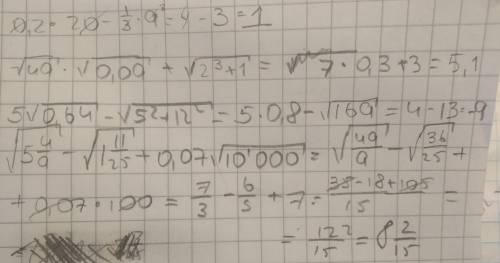 0,2 · 20 - 1/3 · 9 = 4 - 3 = 1
√49 · √0,09 + √(2³+1) = 7 · 0,3 + 3 = 5,1
5√0,64 - √(5²+12²) = 5 · 0,8 - √169 = 4 - 13 = -9
√(5 4/9) - √(1 11/25) + 0,07√10'000 = √(49/9) - √(36/25) +
+ 0,07 · 100 = 7/3 - 6/5 + 7 = (35-18+105)/15 =
= 122/15 = 8 2/15